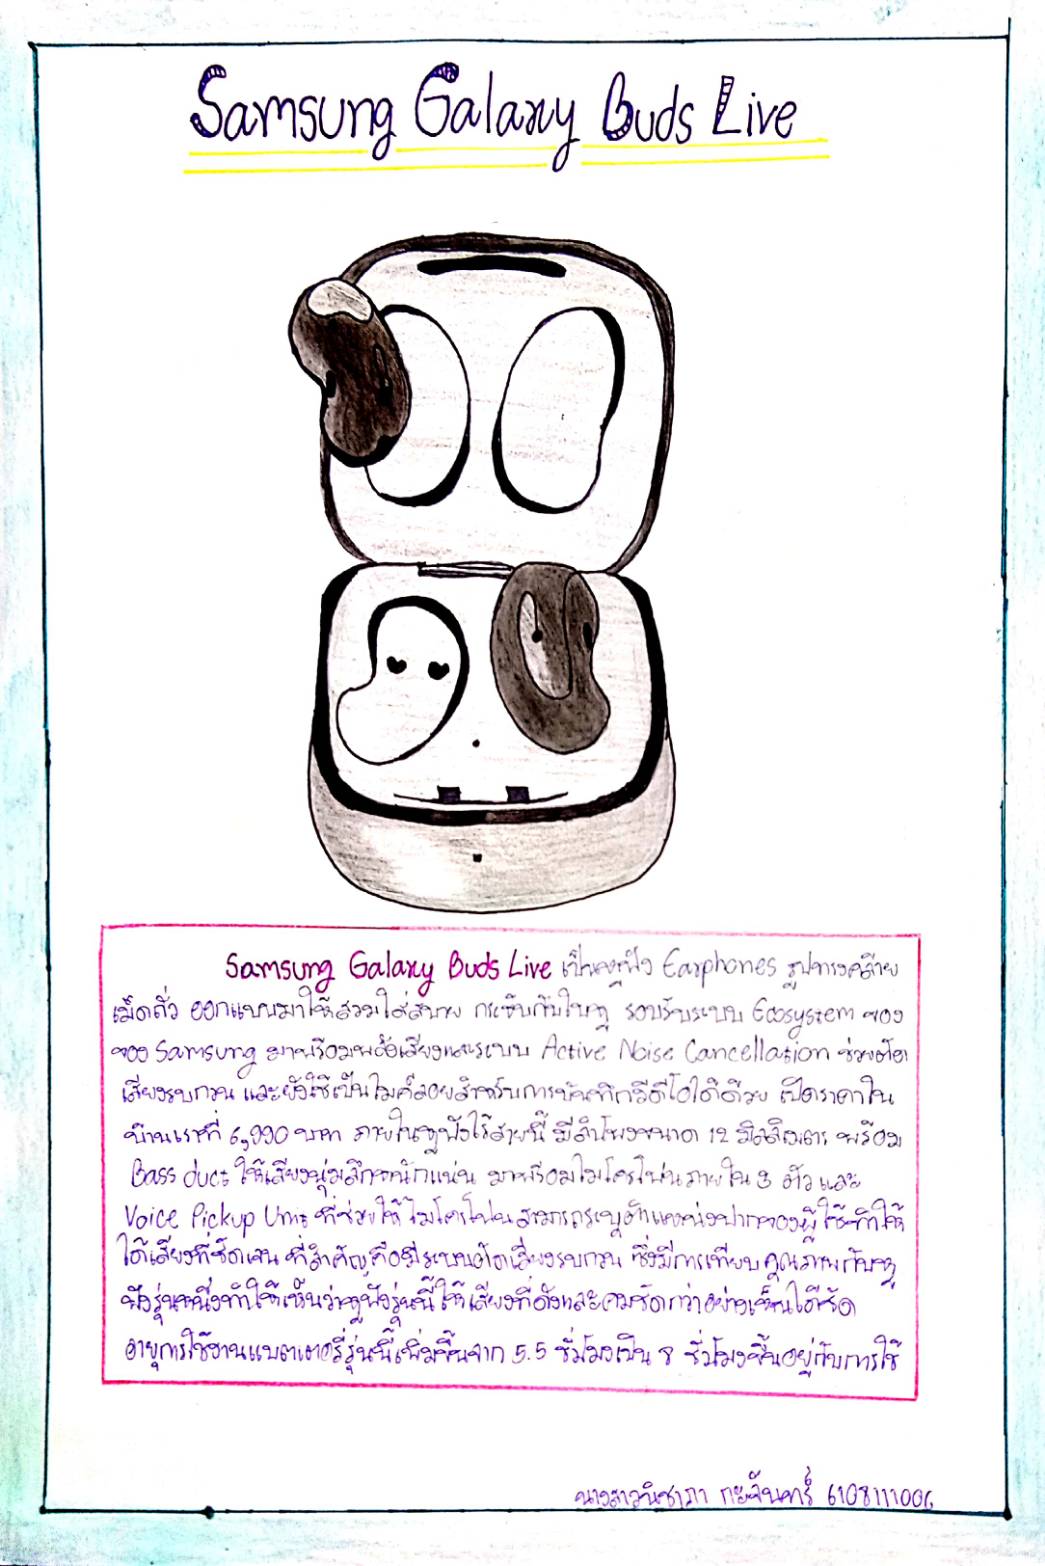 Samsung Galaxy Buds Live
Samsung Galaxy Buds Live เป็นหูฟัง Earphones รูปทรงคล้าย
เม็ดถั่ว ออกแบบมาให้สวมใส่สบาย กระชับกับใบหู รองรับระบบ Ecosystem ของ
ของ Samsung มาพร้อมพลังเสียงและระบบ Active Noise Cancellation ช่วยตัด
เสียงรบกวน และยังใช้เป็นไมค์ลอยสำหรับการบันทึกวิดีโอได้ด้วย เปิดราคาใน
บ้านเราที่ 6,990 บาท ภายในหูฟังไร้สายนี้ มีลำโพงขนาด 12 มิลลิเมตร พร้อม
Bass duct ให้เสียงนุ่มลึกหนักแน่น มาพร้อมไมโครโฟนภายใน 3 ตัวและ
Voice Pickup Unit ที่ช่วยให้ไมโครโฟนสามารถระบุตำแหน่งปากของผู้ใช้ทำให้
ได้เสียงที่ชัดเจน ที่สำคัญคือมีระบบตัดเสียงรบกวน ซึ่งมีการเทียบคุณภาพกับหู
ฟังรุ่นหนึ่งทำให้เห็นว่าหูฟังรุ่นนี้ให้เสียงที่ดังและคมชัดกว่าอย่างเห็นได้ชัด
อายุการใช้งานแบตเตอรี่รุ่นนี้เพิ่มขึ้นจาก 5.5 ชั่วโมงเป็น 8 ชั่วโมงขึ้นอยู่กับการใช้
นางสาวนิชาภา กะจันทร์ 6108111006